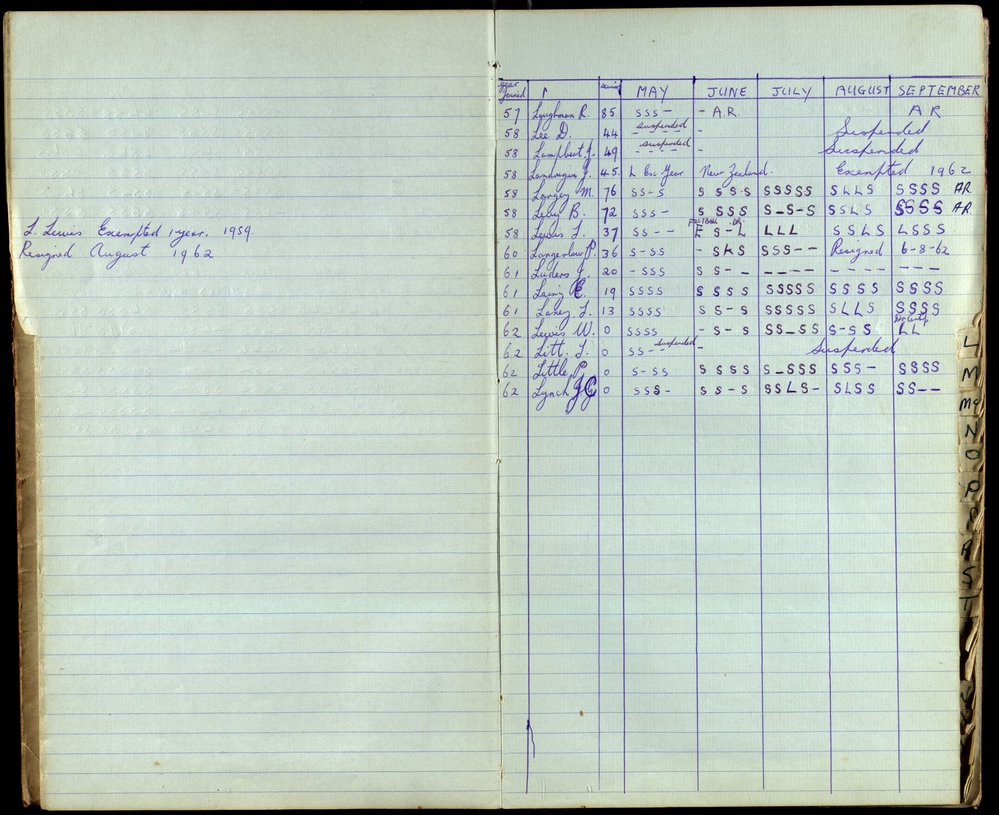 L. Lewis Exempted 1 year. 1959.
Resigned August 1962
year joined MAY JUNE JULY AUGUST SEPTEMBER
57 Loughnan R. 85 SSS- - A.R. A R
58 Lee D. 44 suspended ---- - Suspended
58 Lambert J. 49 suspended ---- - Suspended
58 Landrigan J. 45 L Ex. Year New Zealand. Exempted 1962
58 Langey M. 76 SS-S SSSS SSSSS SLLS SSSS AR
58 Levy B. 72 SSS- SSSS S-S-S SSLS SSSS AR
58 Lewis L. 37 SS-- FOOTBALL E S-L LLL SSLS LSSS
60 Langenlow P. 36 S-SS -SLS SSS-- Resigned 6-8-62
61 Luders J. 20 -SSS SS-- ---- ---- ---
61 Laing E. 19 SSSS SSSS SSSSS SSSS SSSS
61 Lahey L. 13 SSSS SS-S SSSSS SLLS SSSS
62 Lewis W. 0 SSSS -S-S SS-SS S-SS LL
62 Litt. L. 0 SS-- suspended - Suspended
62 Little P. 0 S-SS SSSS S-SSS SSS- SSSS
62 Lynch JG 0 SSS- SS-S SSLS- SLSS SS--
L
M
Mc
N
O
P
R
S
T